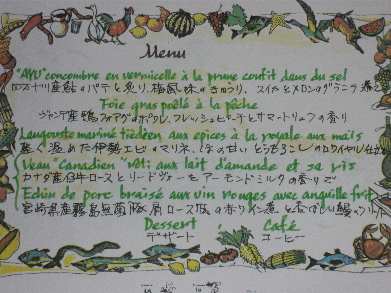 Menu
"AYU" concombre en vermicelle à la prune confit dans du sel
四万十川産鮎のパテと炙り、梅風味のきゅうり、スイカとメロンのグラニテ
Foie gras poêlé à la pêche
ジャンデ産鴨フォアグラのポワレ、フレッシュピーチとサマートリュフの香り
Langouste mariné tiédeen aux epices à la royale aux mais
軽く温めた伊勢エビのマリネ、ほの甘いとうもろこしのロワイヤル仕
Veau "Canadien" rôti: aux lait d'amande et sa ris
カナダ産仔牛ロースとリードヴォーをアーモンドミルクの香りで
Echin de porc braisé aux vin rouges avec anguille fri
宮崎県産霧島黒豚 肩ロース肉の赤ワイン煮 と香ばしい鰻の
Dessert Café
デザート コーヒー